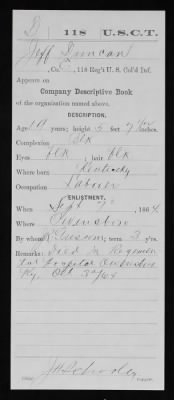 D 118 U.S.C.T.
Jeff Duncan
, Co. , 118 Reg't U. S. Col'd Inf.
Appears on
Company Descriptive Book
of the organization named above.
DESCRIPTION.
Age 19 years; height 5 feet inches.
Complexion Blk
Eyes blk, hair blk
Where born Kentucky
Occupation Laborer
ENLISTMENT.
When Sept , 1864
Where Owensboro
By whom ; term 3 y'rs.
Remarks: Died in Regimen
tal hospital Owensboro
Ky. Oct 30/64